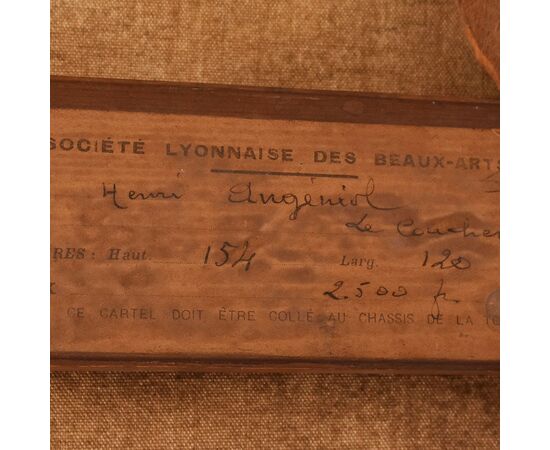 SOCIÉTÉ LYONNAISE DES BEAUX-ARTS
Henri Angéniol
Le Coucher
RES: Haut. 154 Larg. 120
2.500 fr
CE CARTEL DOIT ÊTRE COLLÉ AU CHASSIS DE LA